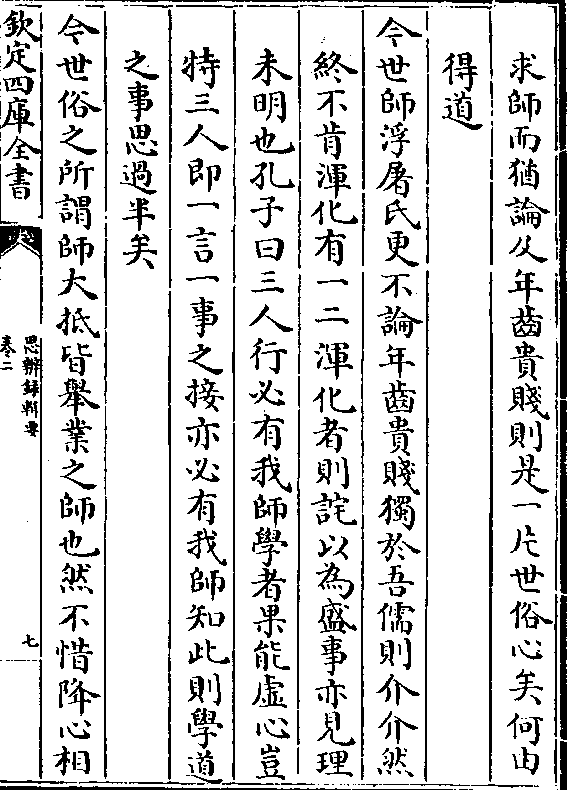 求師而猶論及年齒貴賤則是一片世俗心矣何由
得道
今世師浮屠氏更不論年齒貴賤獨於吾儒則介介然
終不肯渾化有一二渾化者則詫以為盛事亦見理
未明也孔子曰三人行必有我師學者果能虛心豈
特三人即一言一事之接亦必有我師知此則學道
之事思過半矣
今世俗之所謂師大抵皆舉業之師也然不惜降心相
欽定四庫全書
思辨録輯要
卷二
七